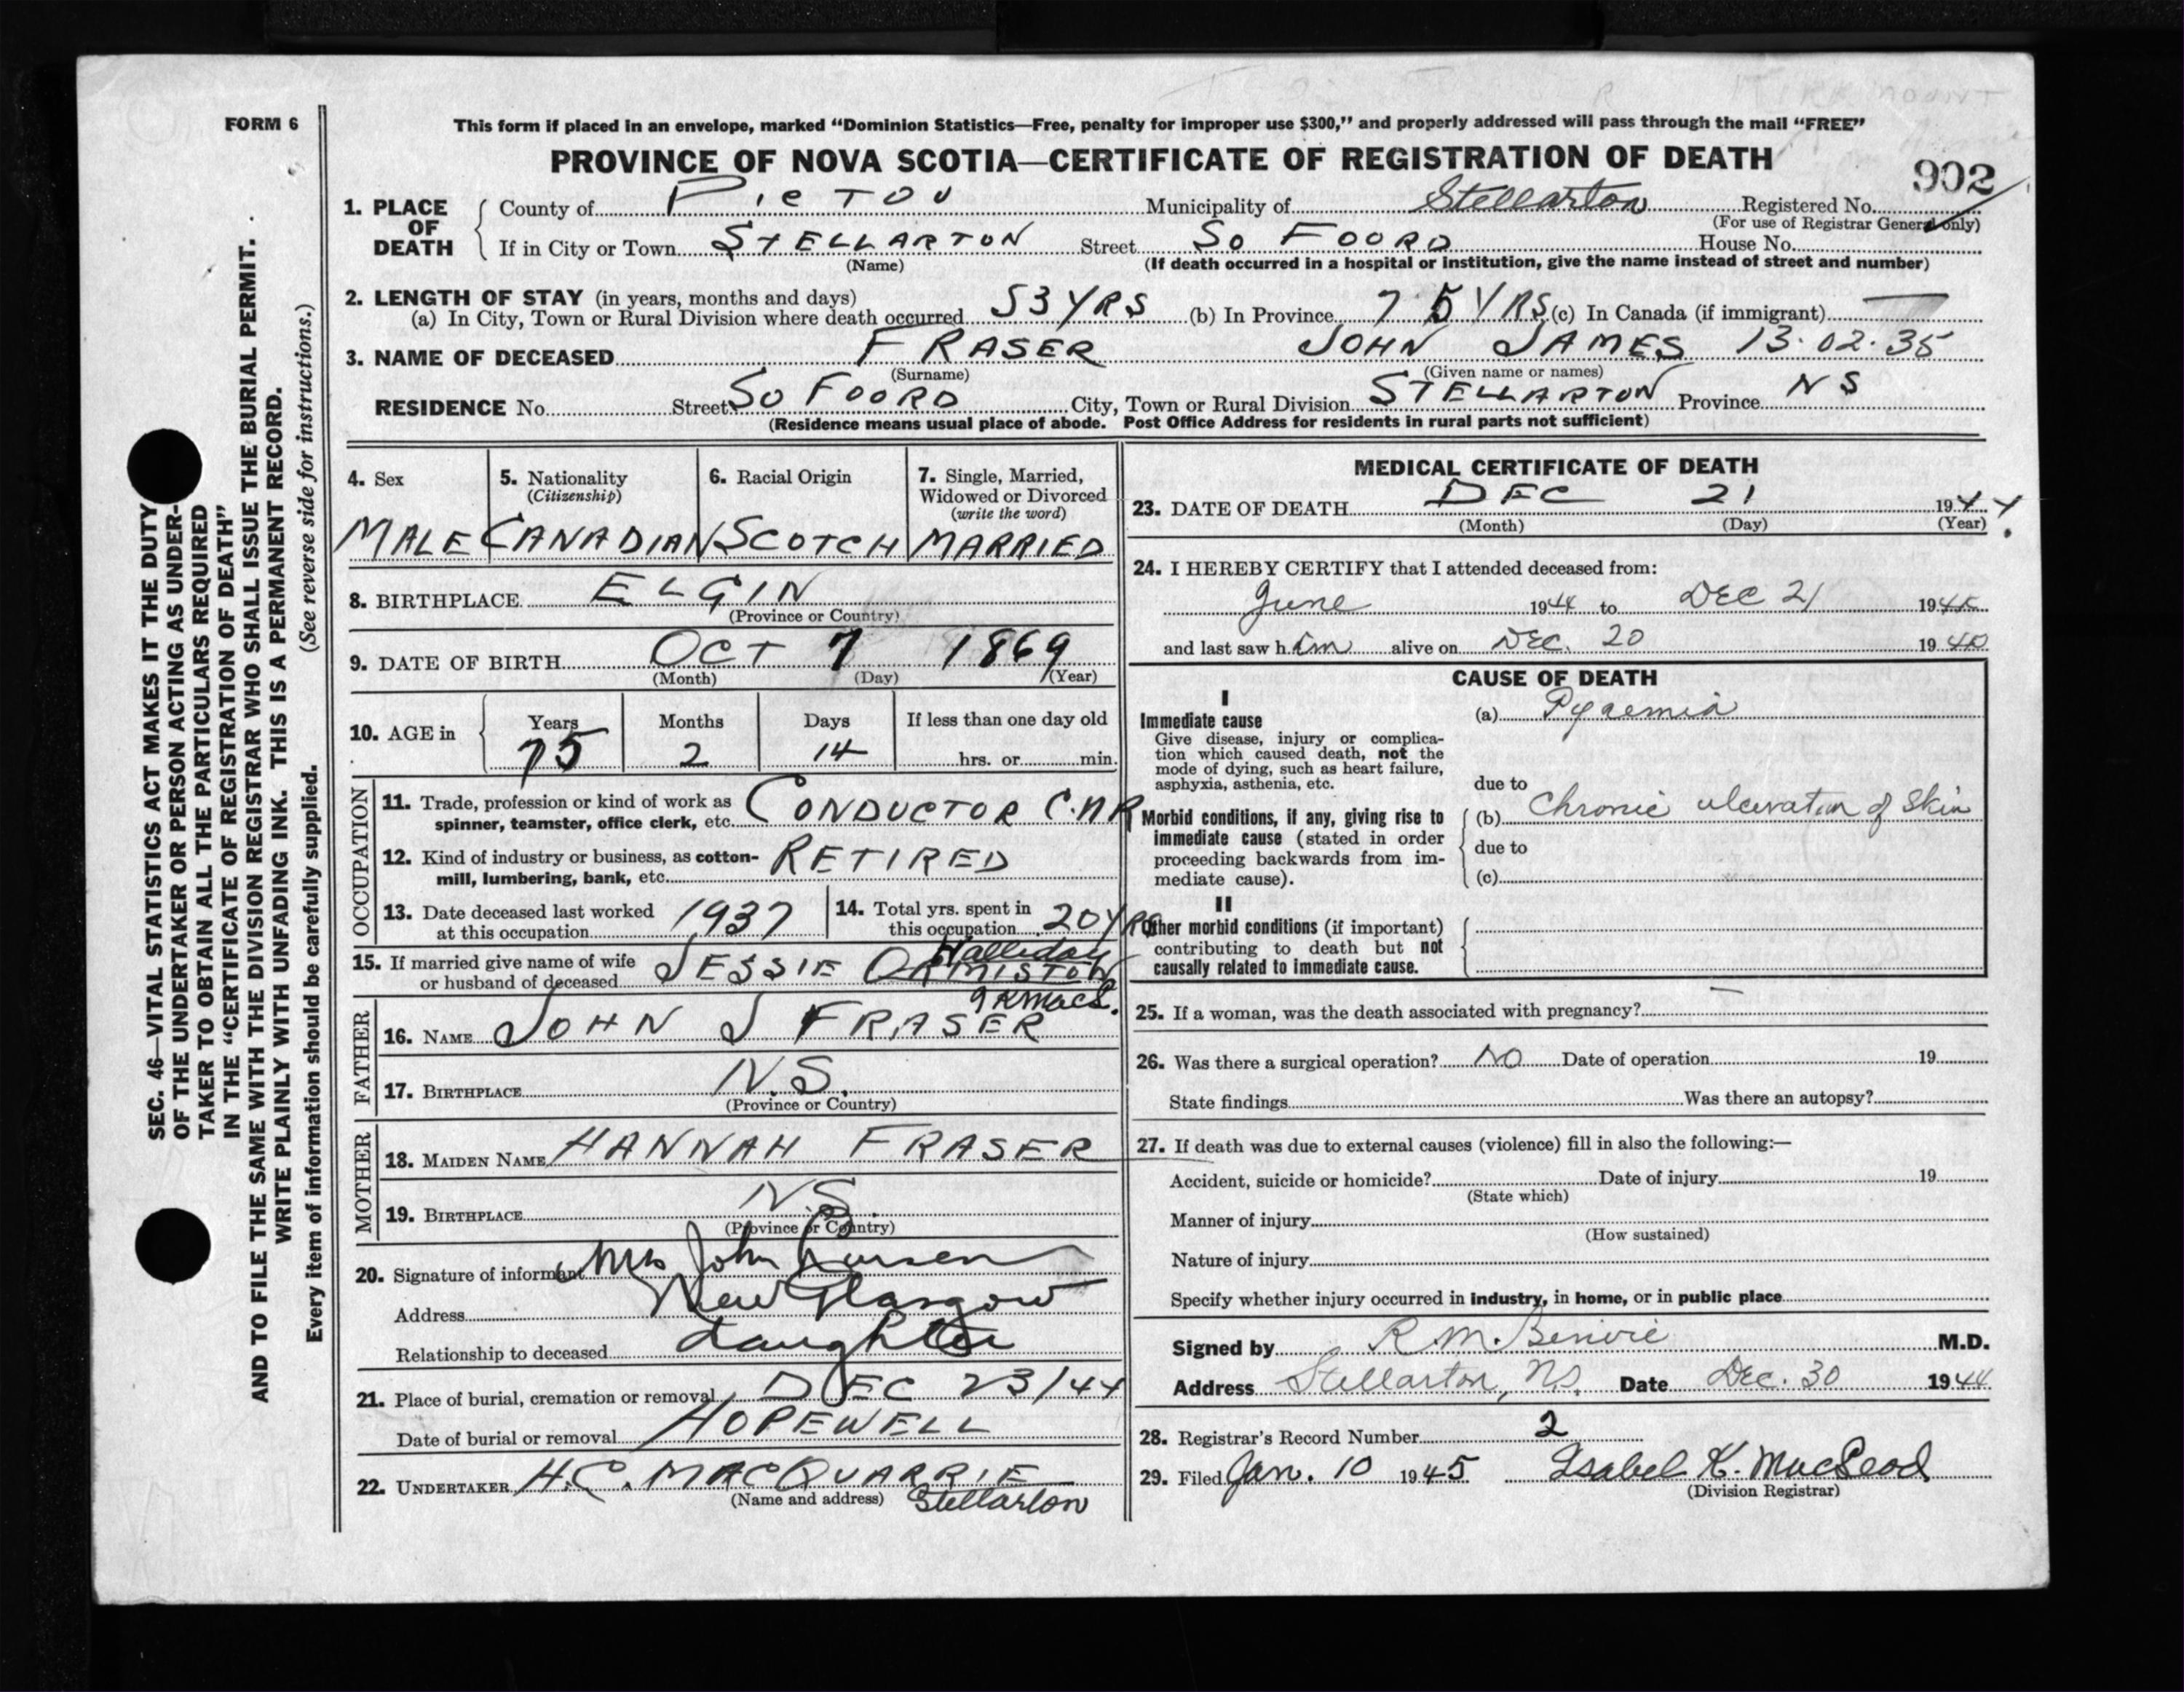 FORM 6
This form if placed in an envelope, marked “Dominion Statistics—Free, penalty for improper use $300,” and properly addressed will pass through the mail “FREE”
PROVINCE OF NOVA SCOTIA—CERTIFICATE OF REGISTRATION OF DEATH
902
1. PLACE OF DEATH
County of PICTOU Municipality of Stellarton Registered No.
(For use of Registrar General only)
If in City or Town STELLARTON Street SO FOORD House No.
(Name) (If death occurred in a hospital or institution, give the name instead of street and number)
2. LENGTH OF STAY (in years, months and days)
(a) In City, Town or Rural Division where death occurred 53 YRS (b) In Province 75 YRS (c) In Canada (if immigrant) —
3. NAME OF DECEASED FRASER JOHN JAMES 13.02.35
(Surname) (Given name or names)
RESIDENCE No. Street SO FOORD City, Town or Rural Division STELLARTON Province NS
(Residence means usual place of abode. Post Office Address for residents in rural parts not sufficient)
4. Sex
MALE
5. Nationality
(Citizenship)
CANADIAN
6. Racial Origin
SCOTCH
7. Single, Married,
Widowed or Divorced
(write the word)
MARRIED
8. BIRTHPLACE ELGIN
(Province or Country)
9. DATE OF BIRTH OCT 7 1869
(Month) (Day) (Year)
10. AGE in Years Months Days If less than one day old
75 2 14 hrs. or min.
OCCUPATION
11. Trade, profession or kind of work as
spinner, teamster, office clerk, etc. CONDUCTOR C.N.R
12. Kind of industry or business, as cotton-
mill, lumbering, bank, etc. RETIRED
13. Date deceased last worked
at this occupation 1937
14. Total yrs. spent in
this occupation 20 YRS
Halliday
15. If married give name of wife
or husband of deceased JESSIE ORMISTON
I K MacL.
FATHER
16. NAME JOHN J FRASER
17. BIRTHPLACE N.S.
(Province or Country)
MOTHER
18. MAIDEN NAME HANNAH FRASER
19. BIRTHPLACE N.S.
(Province or Country)
20. Signature of informant Mrs John
Address New Glasgow
Relationship to deceased daughter
21. Place of burial, cremation or removal DEC 23/44
Date of burial or removal HOPEWELL
22. UNDERTAKER H.C. MACQUARRIE
(Name and address) Stellarton
MEDICAL CERTIFICATE OF DEATH
23. DATE OF DEATH DEC 21 1944.
(Month) (Day) (Year)
24. I HEREBY CERTIFY that I attended deceased from:
June 1944 to DEC 21 1944
and last saw him alive on DEC. 20 1944
CAUSE OF DEATH
I
Immediate cause
Give disease, injury or complica-
tion which caused death, not the
mode of dying, such as heart failure,
asphyxia, asthenia, etc.
(a) Pyaemia
due to
Morbid conditions, if any, giving rise to
immediate cause (stated in order
proceeding backwards from im-
mediate cause).
(b) Chronic ulceration of skin
due to
(c)
II
Other morbid conditions (if important)
contributing to death but not
causally related to immediate cause.
25. If a woman, was the death associated with pregnancy? —
26. Was there a surgical operation? NO Date of operation 19
State findings Was there an autopsy?
27. If death was due to external causes (violence) fill in also the following:—
Accident, suicide or homicide? Date of injury 19
(State which)
Manner of injury
(How sustained)
Nature of injury
Specify whether injury occurred in industry, in home, or in public place
Signed by R.M. Benvie M.D.
Address Stellarton, NS. Date Dec. 30 1944
28. Registrar's Record Number 2
29. Filed Jan. 10 1945 Isabel K. MacLeod
(Division Registrar)
SEC. 46—VITAL STATISTICS ACT MAKES IT THE DUTY
OF THE UNDERTAKER OR PERSON ACTING AS UNDER-
TAKER TO OBTAIN ALL THE PARTICULARS REQUIRED
IN THE “CERTIFICATE OF REGISTRATION OF DEATH”
AND TO FILE THE SAME WITH THE DIVISION REGISTRAR WHO SHALL ISSUE THE BURIAL PERMIT.
WRITE PLAINLY WITH UNFADING INK. THIS IS A PERMANENT RECORD.
Every item of information should be carefully supplied. (See reverse side for instructions.)